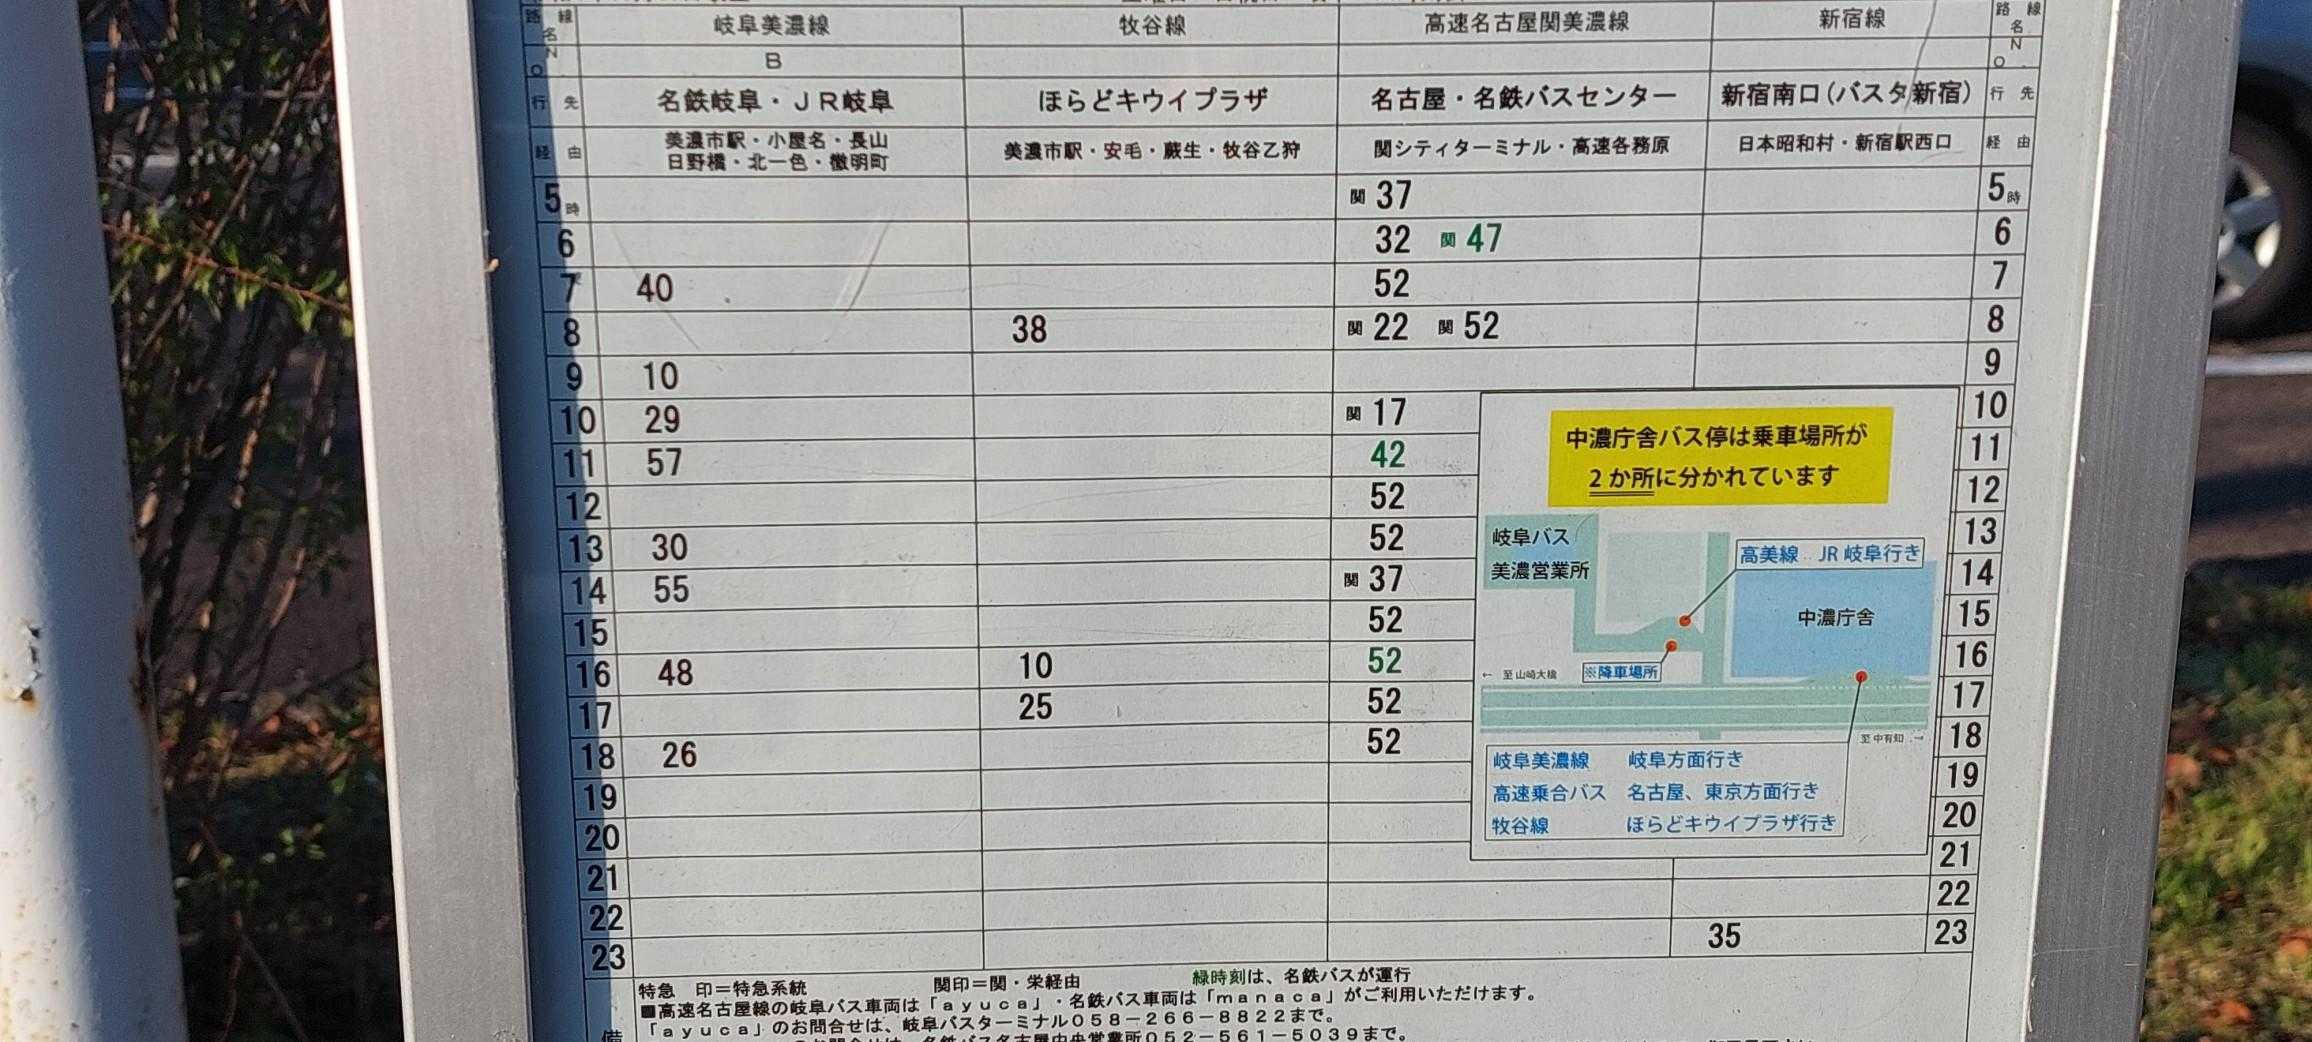 路線名 岐阜美濃線 牧谷線 高速名古屋関美濃線 新宿線 路線名
NO B NO
行先 名鉄岐阜・JR岐阜 ほらどキウイプラザ 名古屋・名鉄バスセンター 新宿南口(バスタ新宿) 行先
経由 美濃市駅・小屋名・長山 美濃市駅・安毛・蕨生・牧谷乙狩 関シティターミナル・高速各務原 日本昭和村・新宿駅西口 経由
日野橋・北一色・徹明町
5時 関 37 5時
6 32 関 47 6
7 40 52 7
8 38 関 22 関 52 8
9 10 9
10 29 関 17 10
11 57 42 11
12 52 12
13 30 52 13
14 55 関 37 14
15 52 15
16 48 10 52 16
17 25 52 17
18 26 52 18
19 19
20 20
21 21
22 22
23 35 23
中濃庁舎バス停は乗車場所が
2か所に分かれています
岐阜バス
美濃営業所
高美線‥JR岐阜行き
中濃庁舎
※降車場所
← 至山崎大橋
至中有知 →
岐阜美濃線 岐阜方面行き
高速乗合バス 名古屋、東京方面行き
牧谷線 ほらどキウイプラザ行き
特急 印=特急系統 関印=関・栄経由 緑時刻は、名鉄バスが運行
■高速名古屋線の岐阜バス車両は「ayuca」・名鉄バス車両は「manaca」がご利用いただけます。
「ayuca」のお問合せは、岐阜バスターミナル058-266-8822まで。
のお問合せは、名鉄バス名古屋中央営業所052-561-5039まで。
備